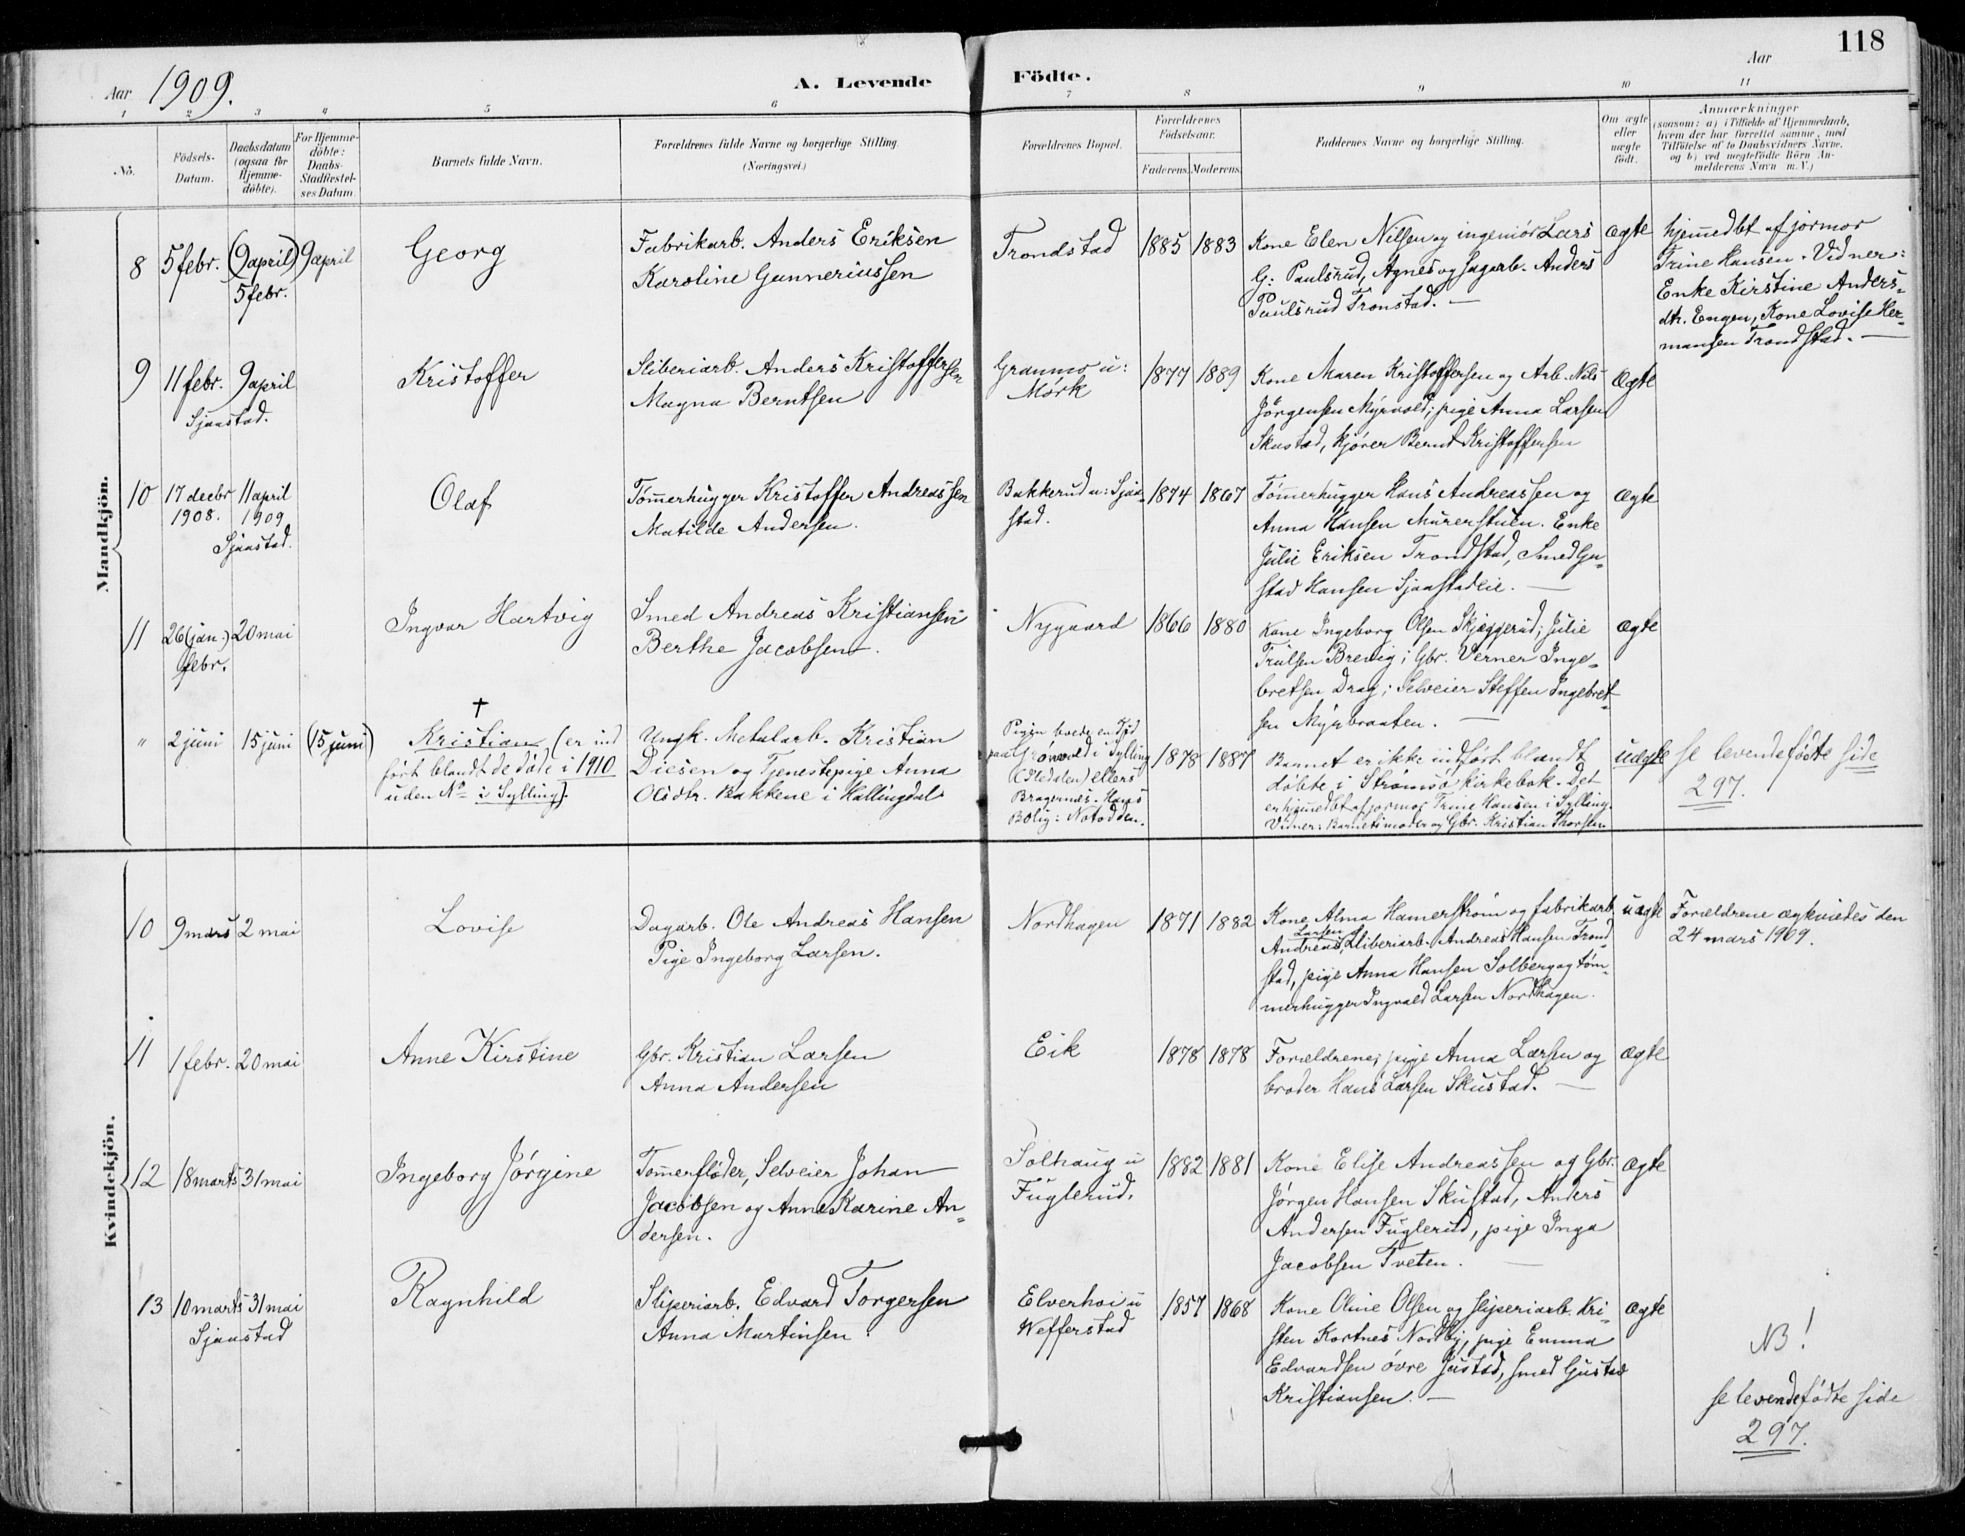 118
Aar 1909.
A. Levende Födte.
Aar
1 2 3 4 5 6 7 8 9 10 11
No.
Födsels-Datum.
Daabsdatum (ogsaa for Hjemme-döbte).
For Hjemme-döbte: Daabs-Stadfæstel-ses Datum.
Barnets fulde Navn.
Forældrenes fulde Navne og borgerlige Stilling.
(Næringsvei.)
Forældrenes Bopæl.
Forældrenes Födselsaar.
Faderens. Moderens.
Faddernes Navne og borgerlige Stilling.
Om ægte eller uægte födt.
Anmærkninger
(saasom: a) i Tilfælde af Hjemmedaab,
hvem der har forrettet samme, med
Tilföielse af to Daabsvidners Navne,
og b) ved uægtefödte Börn An-
melderens Navn m. V.)
Mandkjön.
8 5 febr. (9 april) 5 febr. 9 april
Georg
Fabrikarb. Anders Eriksen
Karoline Gunneriussen
Trondstad 1885 1883
Kone Elen Nilsen og ingeniör Lars
G: Paulsrud, Agnes og Sagarb. Anders
Paulsrud Tronstad. —
ægte
hjemedbt af jormor
Trine Hansen. Vidner:
Enke Kirstine Anders-
dtr. Engen, Kone Lovise Her-
mansen Trondstad. —
9 11 febr. 9 april
Sjaastad.
Kristoffer
Sliberiarb. Anders Kristoffersen
Magna Berntsen
Granmo u:
Mørk
1877 1889
Kone Maren Kristoffersen og Arb. Nils
Jörgensen Myrvold; pige Anna Larsen
Skustad, kjörer Bernt Kristoffersen
Ægte
10 17 decbr 1908. 11 april 1909
Sjaastad.
Olaf
Tömerhugger Kristoffer Andreassen
Matilde Andersen.
Bakkerud u: Sjaa-
stad.
1874 1867
Tömerhugger Hans Andreassen og
Anna Hansen Murerstuen. Enke
Julie Eriksen Trondstad, Smed Gu-
stav Hansen Sjaastadeie. —
ægte
11 26 (jan.) febr. 20 mai
Ingvar Hartvig
Smed Andreas Kristiansen
Berthe Jacobsen.
Nygaard 1866 1880
Kone Ingeborg Olsen Skjæggerud; Julie
Trulsen Brevig; Gbr. Verner Inge-
bretsen Drag; Selveier Steffen Ingebret-
sen Myrbraaten. —
ægte
" 2 juni 15 juni (15 juni)
†
Kristian, (er ind
ført blandt de døde i 1910
uden No i Sylling).
Ungk. Metalarb. Kristian
Diesen og Tjenestepige Anna
Olsdtr. Bakkene i Hallingdal
Pigen boede en Tid
paa Grönvold i Sylling
ellers
Bragernæs. Hans
Bolig: Notodden.
1878 1887
Barnet er ikke indført blandt
döbte i Strømsö kirkebok. Det
er hjemedbt af jormor Trine Hansen i Sylling.
Vidner: Barnets moder og Gbr. Kristian Thorsen
uægte
se levendefødte side
297.
Kvindekjön.
10 9 mars 2 mai
Lovise
Dagarb. Ole Andreas Hansen
Pige Ingeborg Larsen.
Nordhagen 1871 1882
Kone Alma Hamerstrøm og fabrikarb.
Andreas Larsen, Sliberiarb. Andreas Hansen Trond-
stad, pige Anna Hansen Solberg og töm-
merhugger Ingvald Larsen Nordhagen.
uægte
Forældrene ægteviedes den
24 mars 1909.
11 1 febr. 20 mai
Anne Kirstine
Gbr. Kristian Larsen
Anna Andersen
Eik 1878 1878
Forældrene; pige Anna Larsen og
broder Hans Larsen Skustad. —
ægte
12 18 marts 31 mai
Ingeborg Jörgine
Tømerfløder, Selveier Johan
Jacobsen og Anne Karine An-
dersen.
Solhaug u
Fuglerud.
1882 1881
Kone Elise Andreassen og Gbr.
Jörgen Hansen Skustad, Anders
Andersen Fuglerud, pige Inga
Jacobsen Tveten. —
ægte
13 10 marts 31 mai
Sjaastad
Ragnhild
Sliperiarb. Edvard Torgersen
Anna Martinsen
Elverhøi u
Wefferstad
1857 1868
Kone Oline Olsen og sliperiarb. Kri-
sten Kortnes Nordby, pige Emma
Edvardsen övre Justad, smed Gustav
Kristiansen. —
ægte
NB!
se levendefødte side
297.